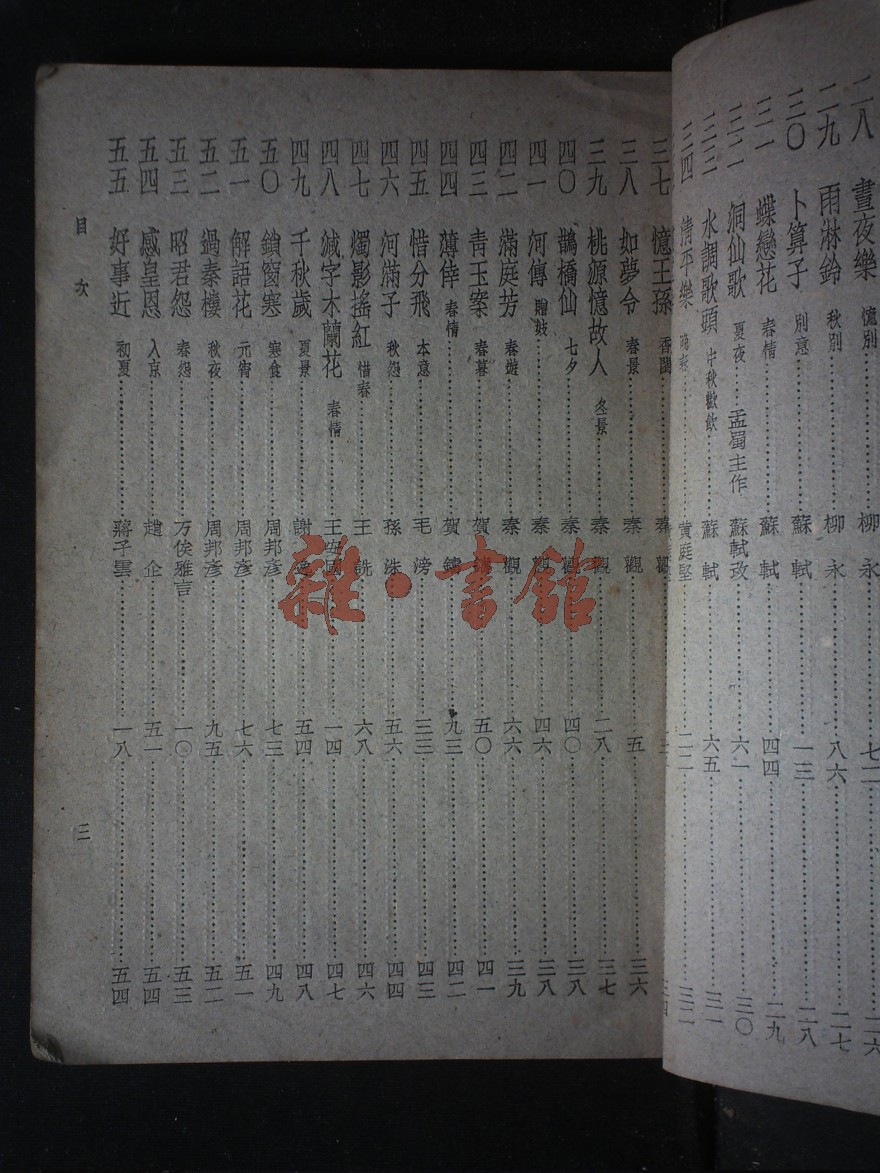 二八 晝夜樂 憶別 柳永 七二 二六
二九 雨淋鈴 秋別 柳永 八六 二七
三〇 卜算子 別意 蘇軾 一三 二八
三一 蝶戀花 春情 蘇軾 四四 二九
三二 洞仙歌 夏夜 孟蜀主作 蘇軾改 六一 三〇
三三 水調歌頭 中秋歡飲 蘇軾 六五 三一
三四 清平樂 黃庭堅 二二 三二
三七 憶王孫 香閨 秦觀
三八 如夢令 春景 秦觀 五 三六
三九 桃源憶故人 冬景 秦觀 二八 三七
四〇 鵲橋仙 七夕 秦觀 四〇 三八
四一 河傳 贈妓 秦觀 四六 三八
四二 滿庭芳 春遊 秦觀 六六 三九
四三 青玉案 春暮 賀鑄 五〇 四一
四四 薄倖 春情 賀鑄 九三 四二
四五 惜分飛 本意 毛滂 三三 四三
四六 河滿子 秋怨 孫洙 五六 四四
四七 燭影搖紅 惜春 王詵 六八 四六
四八 減字木蘭花 春情 王安國 一四 四七
四九 千秋歲 夏景 謝逸 五四 四八
五〇 鎖窗寒 寒食 周邦彥 七三 四九
五一 解語花 元宵 周邦彥 七六 五一
五二 過秦樓 秋夜 周邦彥 九五 五二
五三 昭君怨 春怨 万俟雅言 一〇 五三
五四 感皇恩 入京 趙企 五一 五四
五五 好事近 初夏 蔣子雲 一八 五四
目次 三
雜·書館